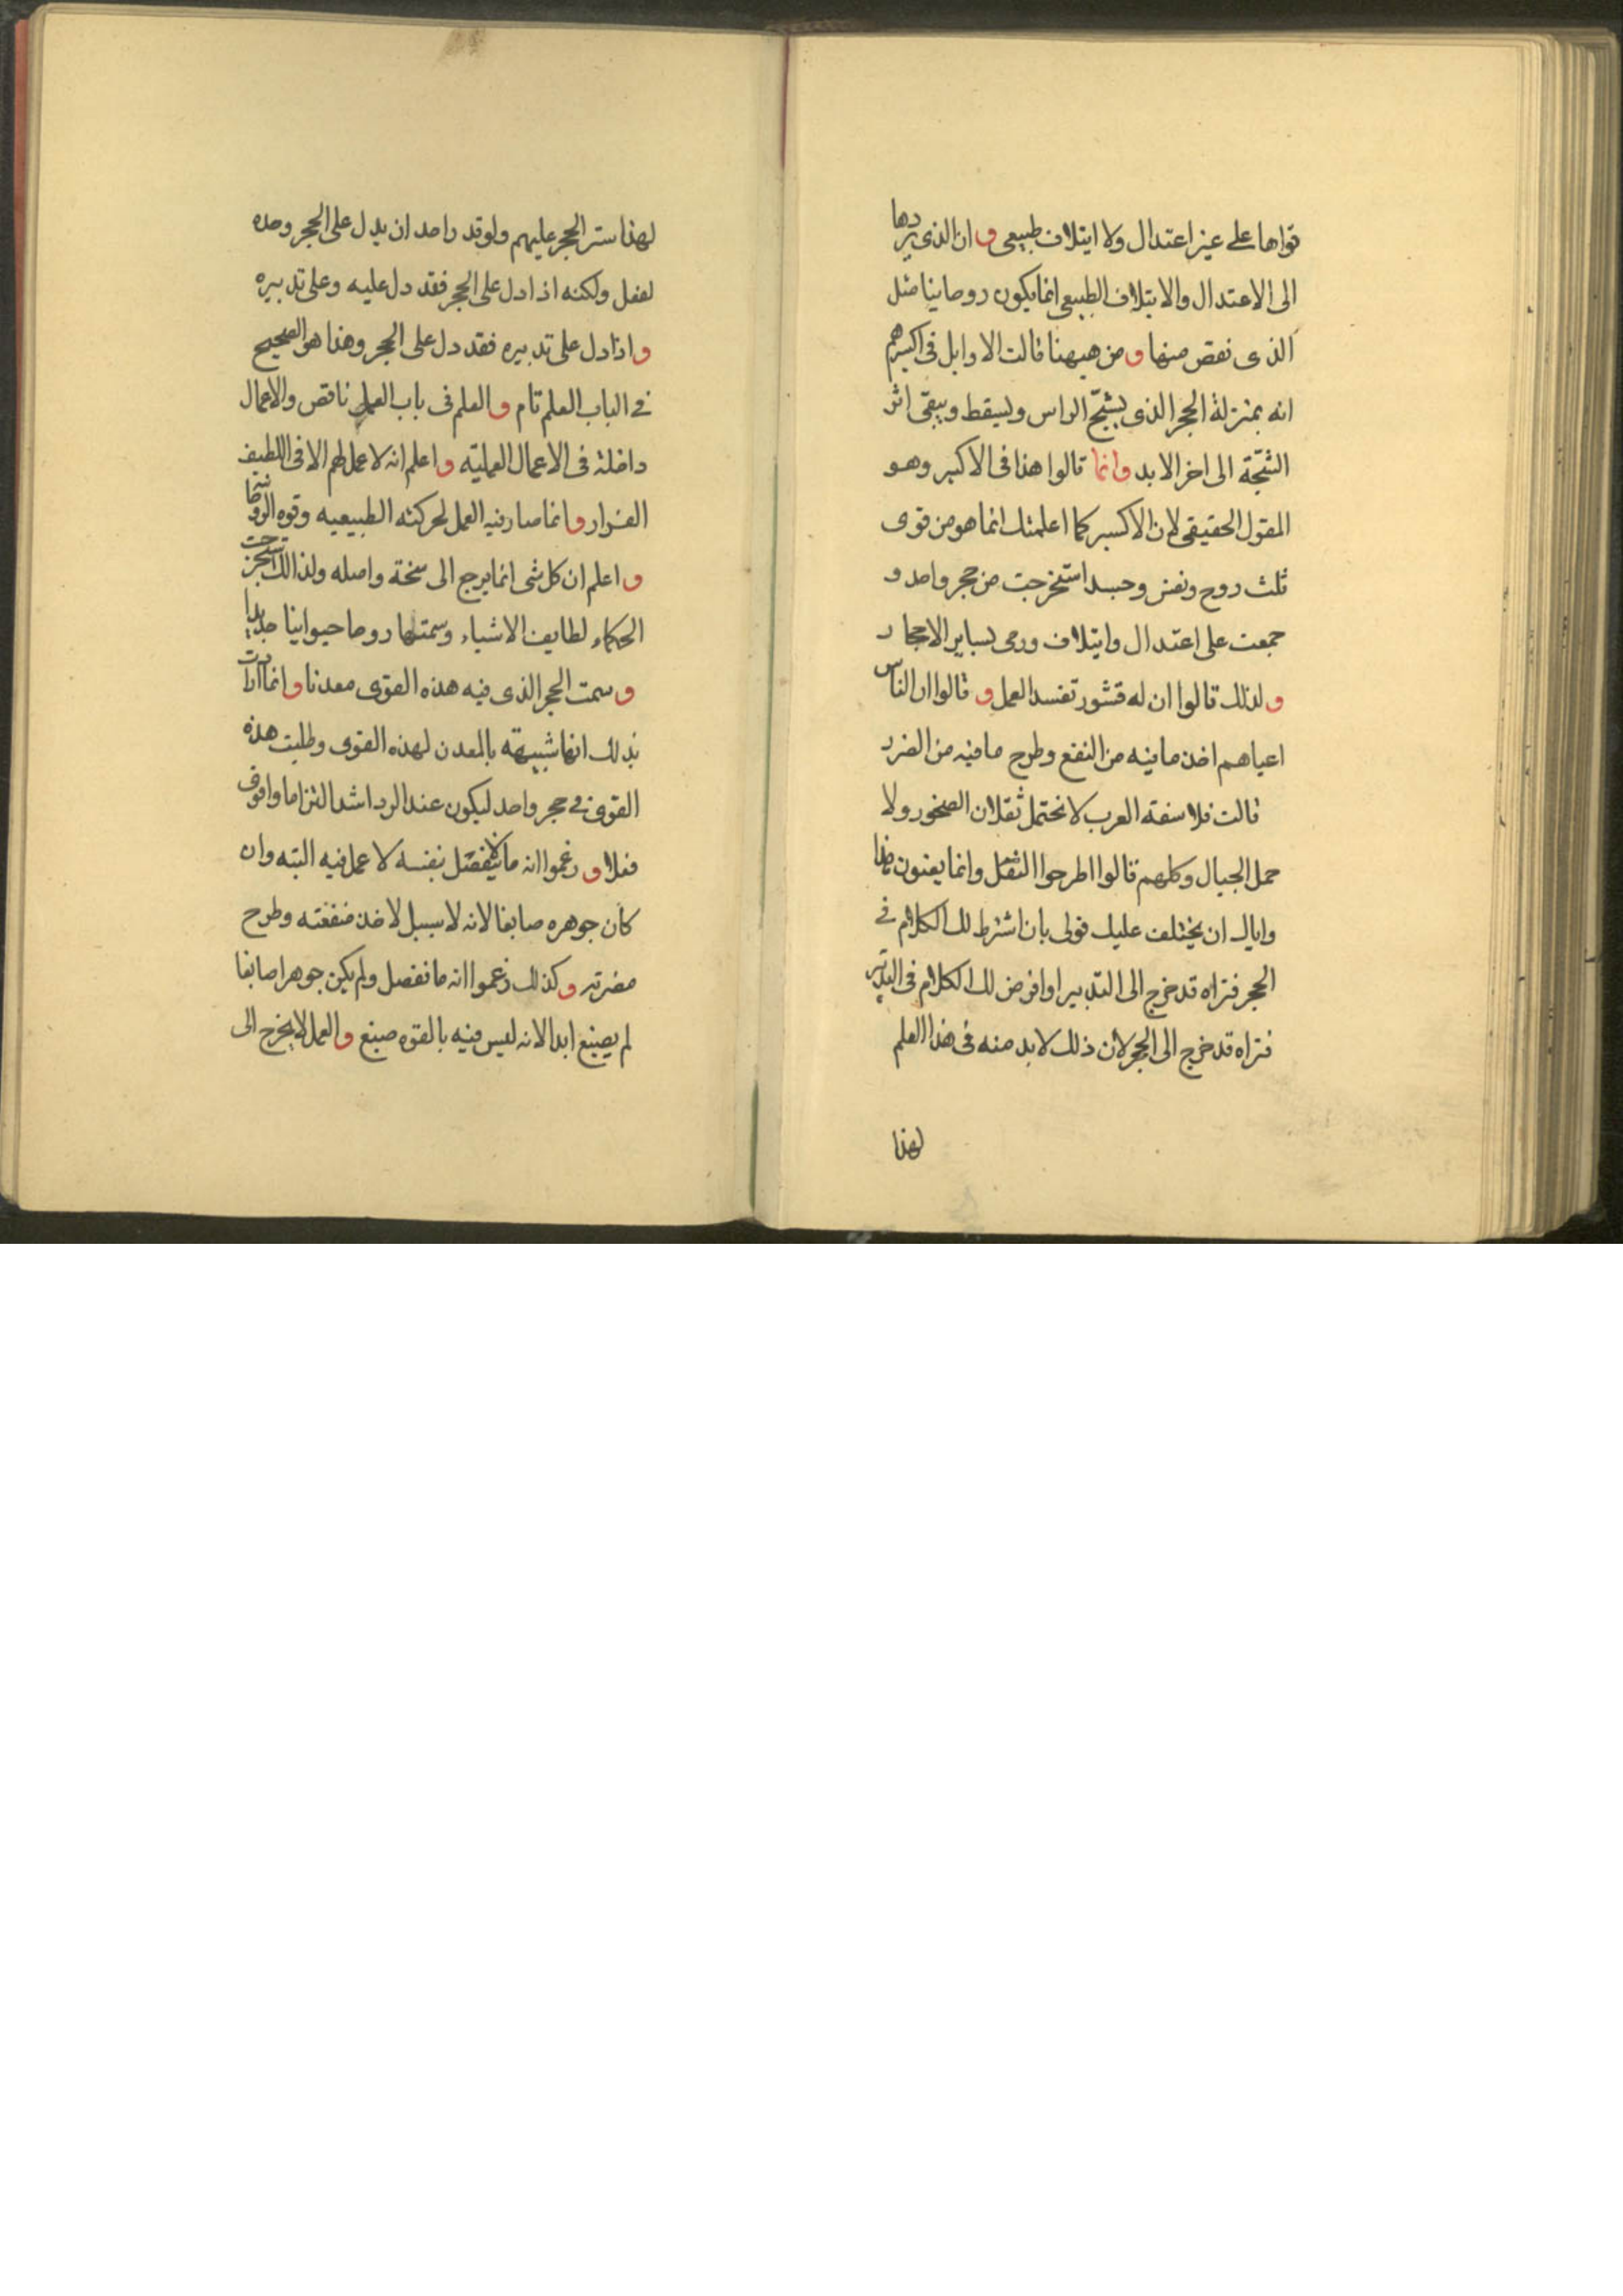 قواها على غير اعتدال ولا ايتلاف طبيعى وان الذى يردها
الى الاعتدال والايتلاف الطبيعى انما يكون روحانيا مثل
الذى نقص منها ومن هيهنا قالت الاوايل فى اكسيرهم
انه بمنزلة الحجر الذى يشجّ الراس ويسقط ويبقى اثر
الشجّة الى اخر الابد وانما قالوا هذا فى الاكسير وهو
المقول الحقيقى لان الاكسير كما اعلمتك انما هو من قوى
ثلث روح ونفس وجسد استخرجت من حجر واحد و
جمعت على اعتدال وايتلاف ورمى بساير الاحجار
ولذلك قالوا ان له قشور تفسد العمل وقالوا ان الناس
اعياهم اخذ ما فيه من النفع وطرح ما فيه من الضرر
قالت فلاسفة العرب لا نحتمل ثقلان الصخور ولا
حمل الجبال وكلهم قالوا اطرحوا الثقل وانما يعنون هذا
واياك ان يختلف عليك قولى بان اشترط لك الكلام فى
الحجر فتراه قد خرج الى التدبير او افرض لك الكلام فى التدبير
فتراه قد خرج الى الحجر لان ذلك لا بد منه فى هذا العلم
لهذا
لهذا ستر الحجر عليهم ولو قدر احد ان يدل على الحجر وحده
لفعل ولكنه اذا دل على الحجر فقد دل عليه وعلى تدبيره
واذا دل على تدبيره فقد دل على الحجر وهذا هو الصحيح
فى الباب العلم تام والعلم فى باب العمل ناقص والاعمال
داخلة فى الاعمال العمليّه واعلم انه لا عمل لهم الا فى اللطيف
الفرار وانما صار فيه العمل لحركته الطبيعيه وقوه الروحا
واعلم ان كل شى انما يرجع الى سخة واصله ولذالك استخرجت
الحكماء لطايف الاشياء وسمتها روحا حيوانيا جديدا
وسمت الحجر الذى فيه هذه القوى معدنا وانما ارادت
بذلك انها شبيهة بالمعدن لهذه القوى وطلبت هذه
القوى فى حجر واحد ليكون عند الرد اشد التزاما واقوى
فعلا وزعموا انه ما لا ينفصل بنفسه لا عمل فيه البته وان
كان جوهره صابغا لانه لا سبيل لاخذ منفعته وطرح
مضرته وكذلك زعموا انه ما نفصل ولم يكن جوهرا صابغا
لم يصبغ ابدا لانه ليس فيه بالقوه صبغ والعمل لا يخرج الى